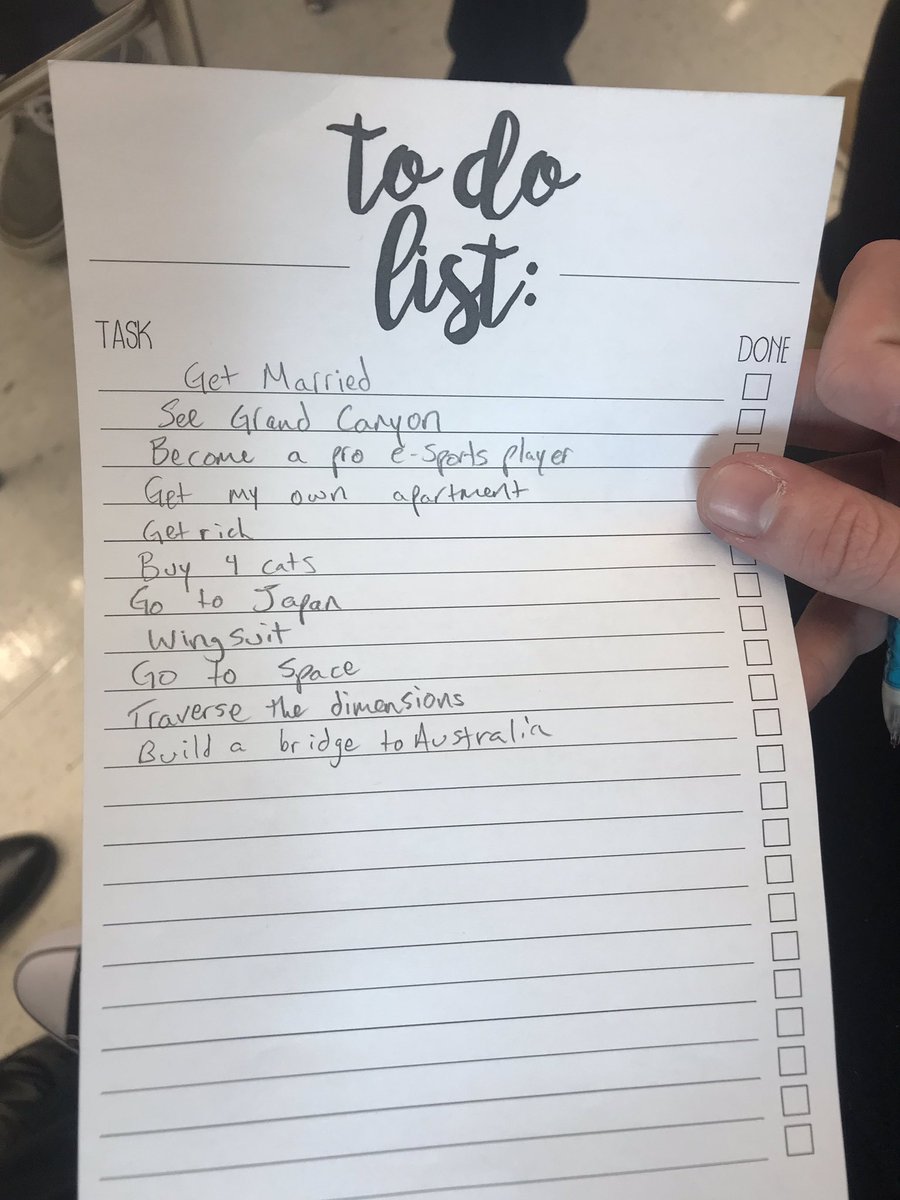 to do
list:
TASK
DONE
Get Married
See Grand Canyon
Become a pro e-Sports player
Get my own apartment
Get rich
Buy 4 cats
Go to Japan
Wingsuit
Go to Space
Traverse the dimensions
Build a bridge to Australia